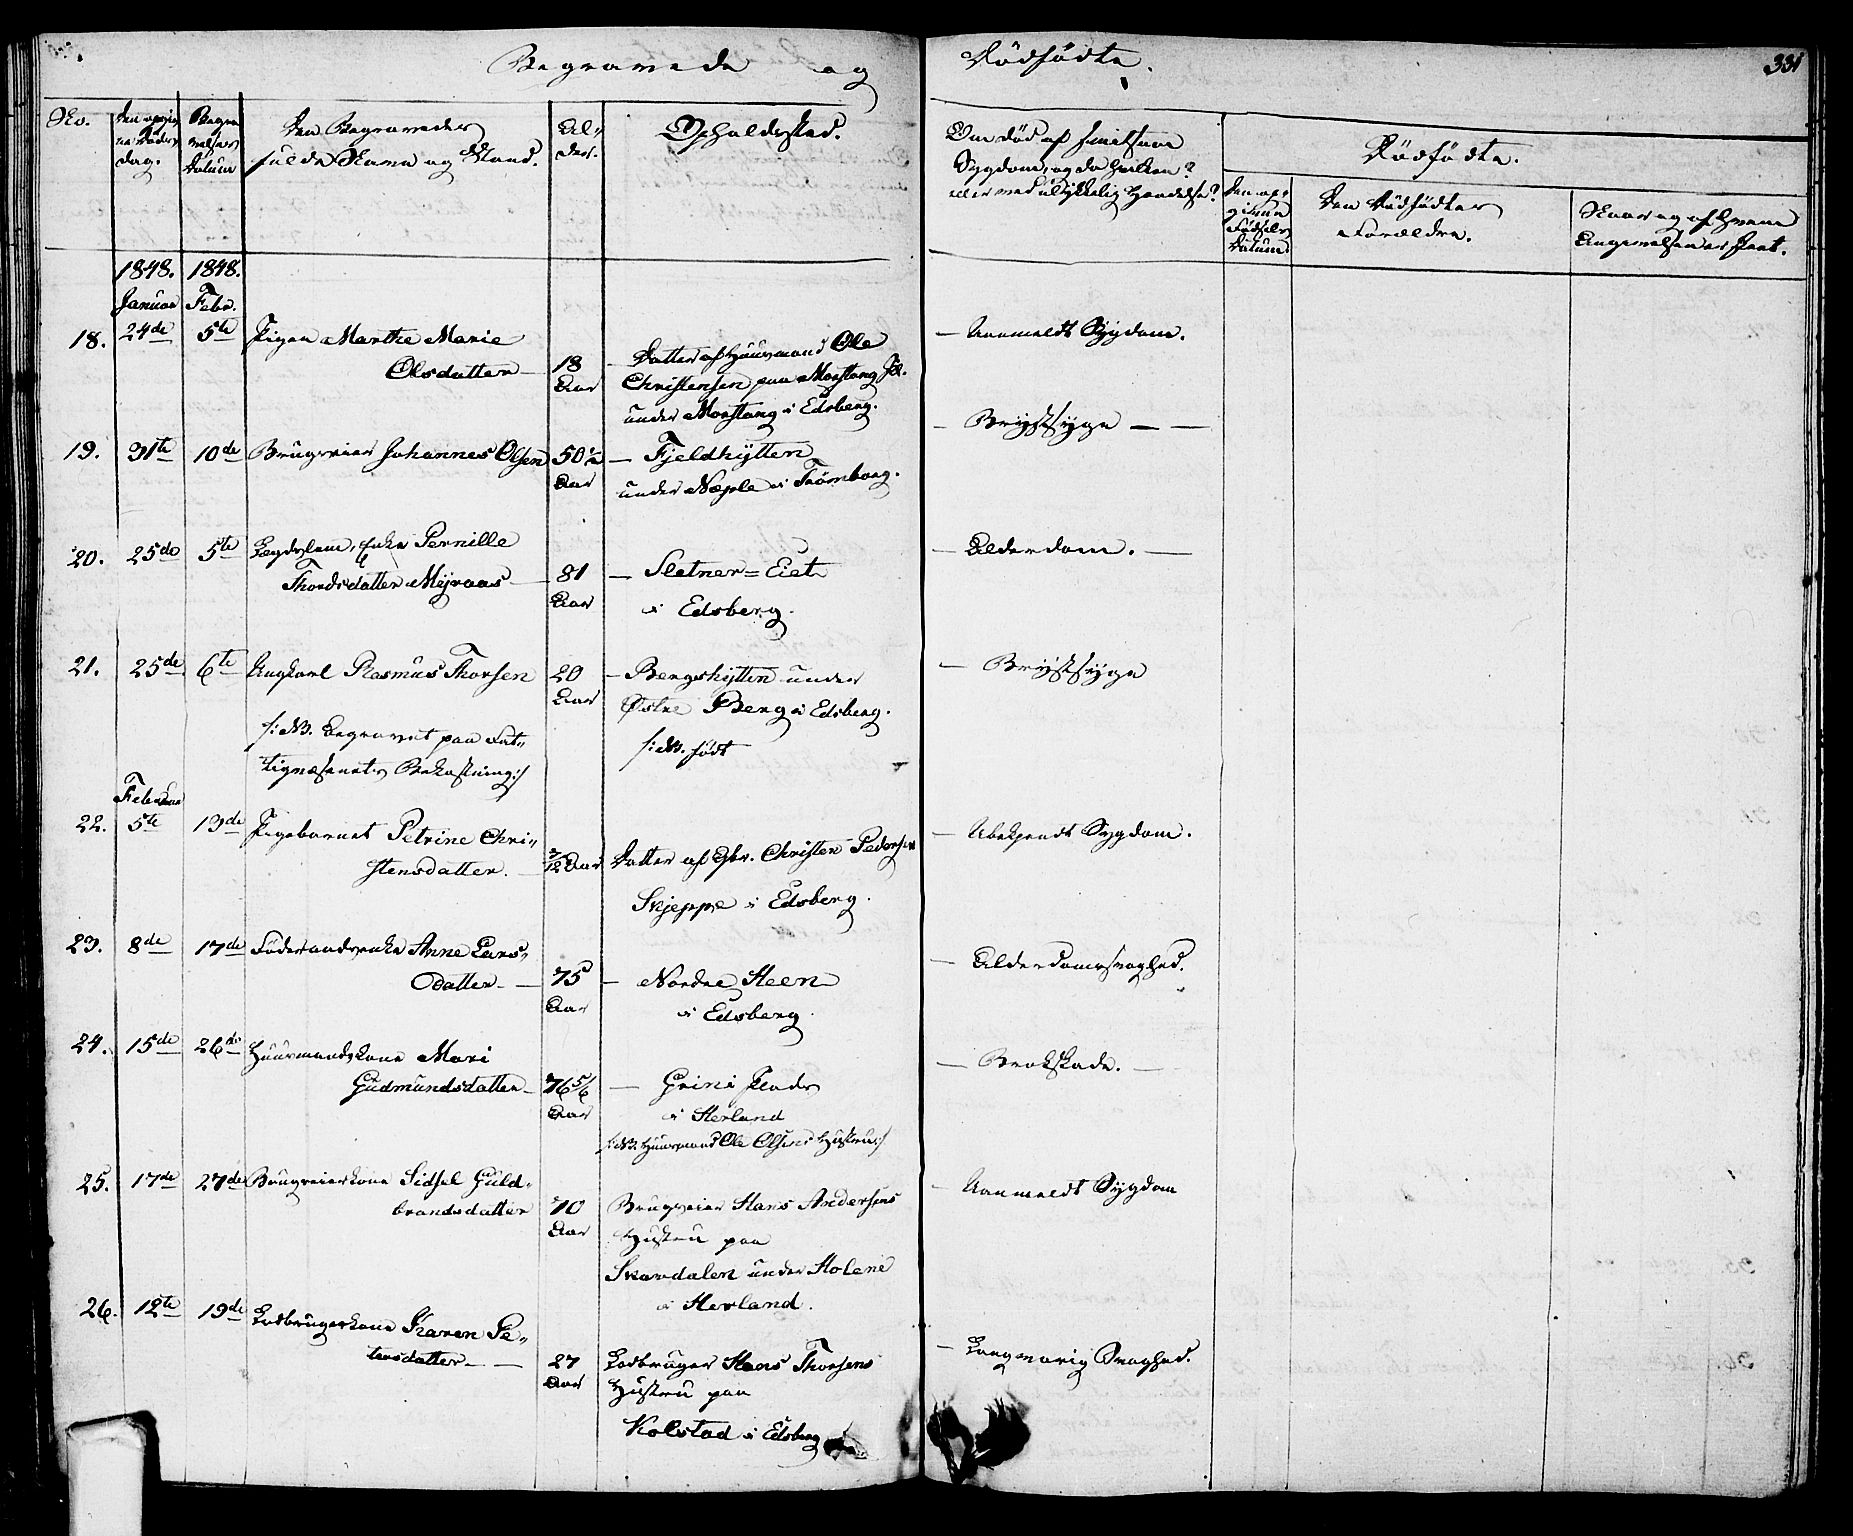 Begravede og Dödfödte.
331
No.
Den opgiv-
ne Döds-
dag.
Begra-
velses
Datum
Den Begravedes
fulde Navn og Stand.
Al-
der.
Opholdssted.
Om död af smitsom
Sygdom, og da hvilken?
eller ved ulykkelig Hændelse?
Dödfödte.
Den op-
givne
Födsels
Datum.
Den Dödfödtes
Forældre.
Naar og af hvem
Angivelsen er skeet.
1848. 1848.
Januar Febr.
18. 24de 5te Pigen Marthe Marie
Olsdatter — 18 Aar
— Datter af Huusmand Ole
Christensen paa Morstang
under Morstang i Edsberg.
— Uanmeldt Sygdom.
19. 31te 10de Brugseier Johannes Olsen 50½ Aar
— Fjeldhytten
under Næple i Trömborg.
— Brystsyge — —
20. 25de 5te Lægdslem, Enke Pernille
Thordsdatter Myraas — 81 Aar
— Sletner=Eiet
i Edsberg.
— Alderdom. —
21. 25de 6te Ungkarl Rasmus Thorsen 20 Aar
— Bergshytten under
Østre Berg i Edsberg.
/: NB. Begravet paa Fat-
tigvæsenets Bekostning :/
/: NB. födt
— Brystsyge
Februar
22. 5te 13de Pigebarnet Petrine Chri-
stensdatter. — 3/12 Aar
Datter af Gbr. Christen Pedersen
Skjeppe i Edsberg.
— Ubekjendt Sygdom.
23. 8de 17de Föderaadsenke Anne Lars-
datter — 75 Aar
— Nordre Heen
i Edsberg.
— Alderdomssvaghed.
24. 15de 26de Huusmandskone Mari
Gudmundsdatter — 76 5/6 Aar
— Grini Plads
i Herland
/: NB. Huusmand Ole Olsens Hustru :/
— Brokskade. —
25. 17de 27de Brugseierkone Sidsel Guld-
brandsdatter 70 Aar
Brugseier Hans Andersens
Hustru paa
Skardalen under Holene
i Herland.
— Uanmeldt Sygdom
26. 12te 19de Lodbrugerkone Karen Pe-
tersdatter — — 27 Aar
Lodbruger Hans Thorsens
Hustru paa
Kolstad i Edsberg
— Langvarig Svaghed.